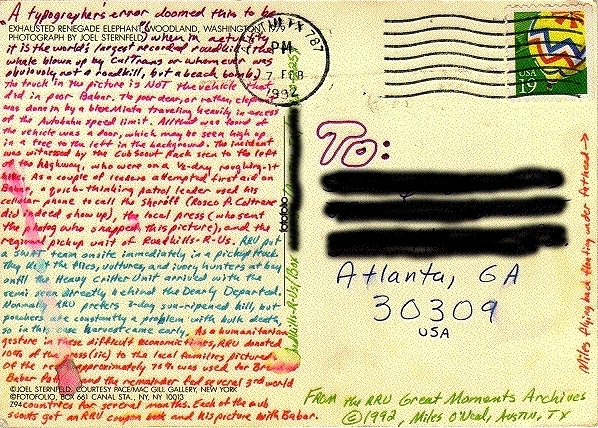 A typographer's error doomed this to be
EXHAUSTED RENEGADE ELEPHANT, WOODLAND, WASHINGTON, 1979
PHOTOGRAPH BY JOEL STERNFELD
when in actuality
it is the world's largest recorded roadkill (the
whale blown up by CalTrans or whomever was
obviously not a roadkill, but a beach bomb.)
The truck in the picture is NOT the vehicle that
did in poor Babar. The poor deer, or rather, elephant
was done in by a blue Miata traveling heavily in excess
of the Autobahn speed limit. All that was found of
the vehicle was a door, which may be seen high up
in a tree to the left in the background. The incident
was witnessed by the Cub Scout Pack seen to the left
of the highway, who were on a ½-day roughing-it
hike. As a couple of leaders attempted first aid on
Babar, a quick-thinking patrol leader used his
cellular phone to call the Sheriff (Rosco P. Coltrane
did indeed show up), the local press (who sent
the photog who snapped this picture), and the
regional pickup unit of Roadkills-R-Us. RRU put
a SWAT team onsite immediately in a pickup truck.
They kept the flies, vultures, and ivory hunters at bay
until the Heavy Critter Unit arrived with the
semi seen directly behind the Dearly Departed.
Normally RRU prefers 3-day sun-ripened kill, but
poachers are constantly a problem with bulk death,
so in this case harvest came early. As a humanitarian
gesture in these difficult economic times, RRU donated
10% of the mass (sic) to the local families pictured.
Of the rest approximately 70% was used for
Babar and the remainder fed several 3rd world
©JOEL STERNFELD, COURTESY PACE/MAC GILL GALLERY, NEW YORK
©FOTOFOLIO, BOX 661 CANAL STA., NY, NY 10013
Z94
countries for several months. Each of the cub
scouts got an RRU coupon book and his picture with Babar.
TX 787
PM
7 FEB
1992
fotofolio
Roadkills-R-Us, Box
USA
19
To:
Atlanta, GA
30309
USA
Miles flying back floating under forehead →
From the RRU Great Moments Archives
©1992, Miles O'Neal, Austin, TX